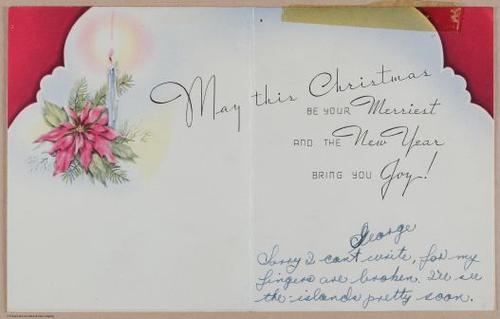 May this Christmas
BE YOUR Merriest
AND THE New Year
BRING YOU Joy!
George
Sorry I can't write, for my
fingers are broken. I'll see
the islands pretty soon.